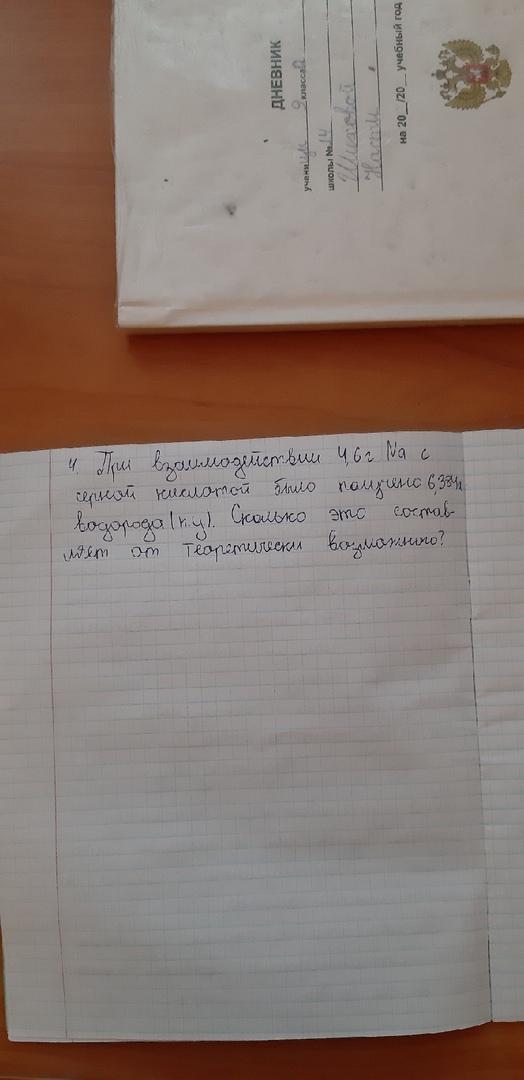 ДНЕВНИК
учени цы 9 класса А
школы № 14
Шиховой
Насти
на 20__/20__ учебный год
4. При взаимодействии 4,6 г Na с
серной кислотой было получено 6,384л
водорода (н.у). Сколько это состав-
ляет от теоретически возможного?